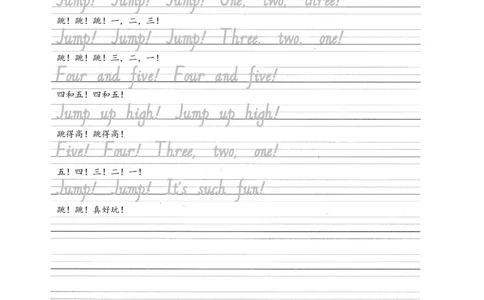 Jump! Jump! Jump! One, two, three!
跳！跳！跳！一，二，三！
Jump! Jump! Jump! Three. two. one!
跳！跳！跳！三，二，一！
Four and five! Four and five!
四和五！四和五！
Jump up high! Jump up high!
跳得高！跳得高！
Five! Four! Three, two, one!
五！四！三！二！一！
Jump! Jump! It's such fun!
跳！跳！真好玩！